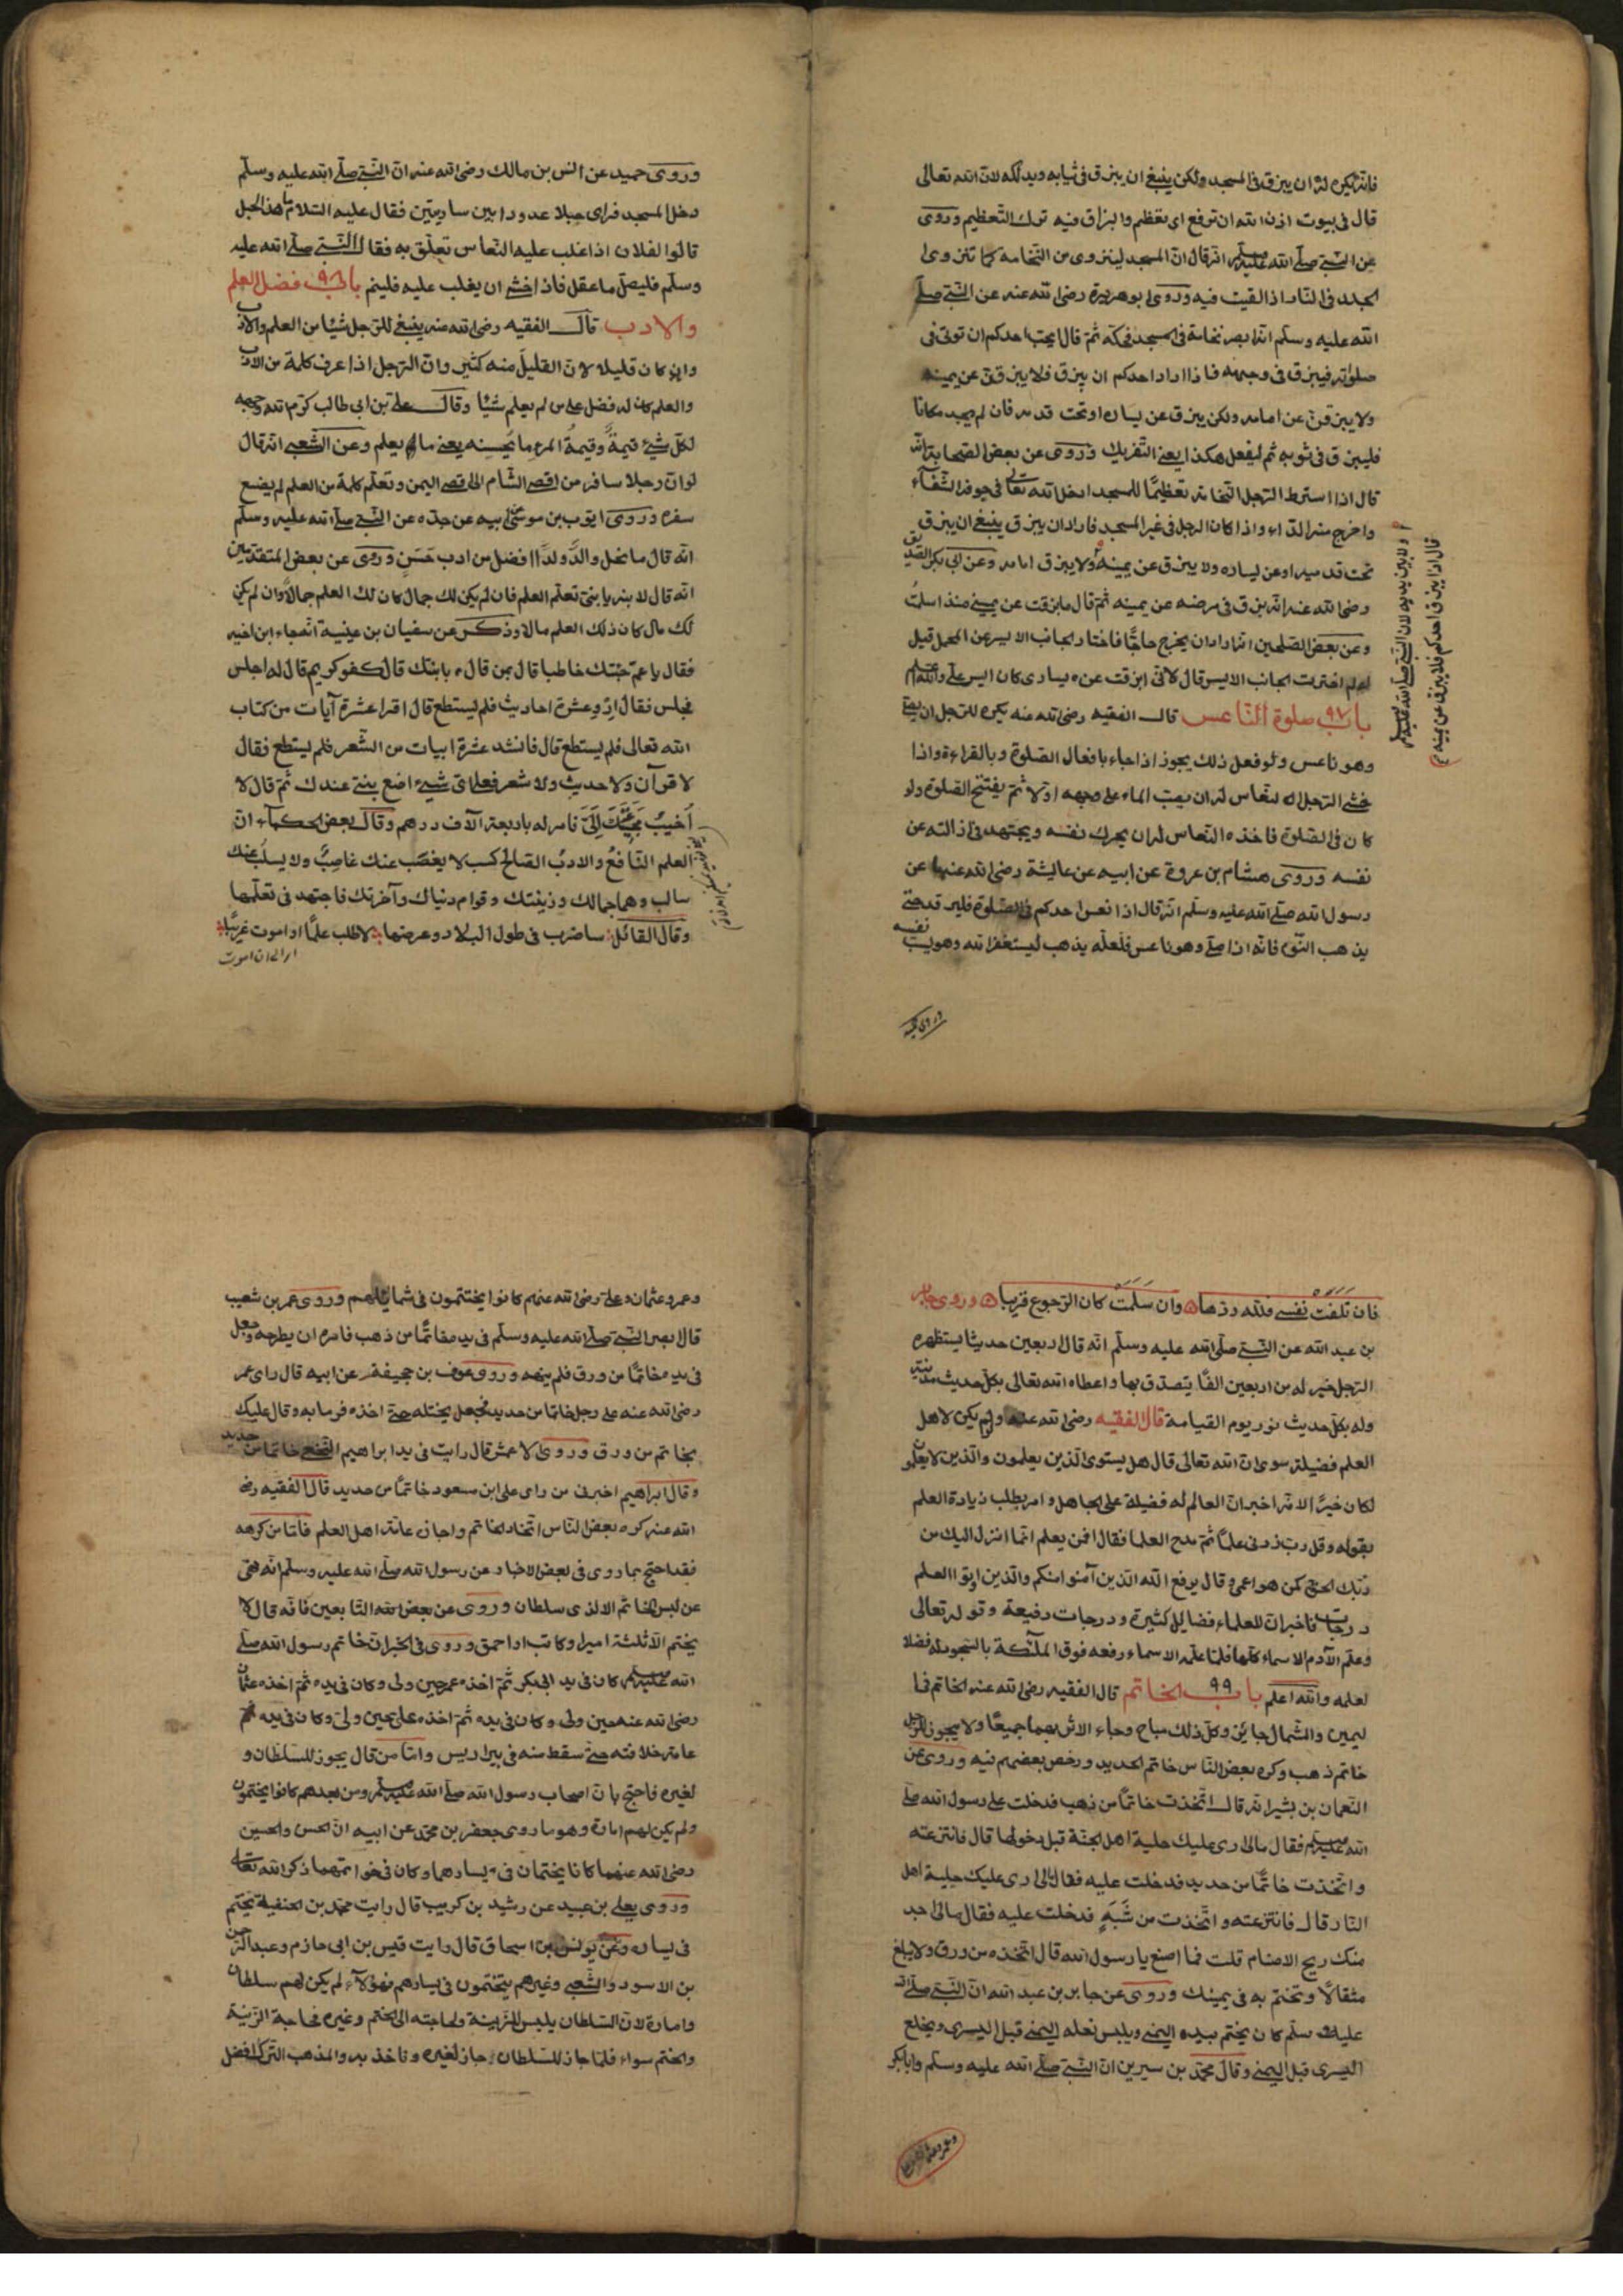 فانه يكره له ان يبزق فى المسجد ولكن ينبغى ان يبزق فى ثيابه ويدلكه لان الله تعالى
قال فى بيوت اذن الله ان ترفع اى تعظم والبزاق فيه ترك التعظيم وروى
عن النبى صلى الله عليه وسلم انه قال ان المسجد لينزوى من النخامة كما تنزوى
الجلد فى النار اذا القيت فيه وروى ابو هريرة رضى الله عنه عن النبى صلى
الله عليه وسلم انه ابصر نخامة فى المسجد فحكه ثم قال ايحب احدكم ان توتى فى
صلوته فيبزق فى وجهه فاذا اراد احدكم ان يبزق فلا يبزقن عن يمينه
ولا يبزقن عن امامه ولكن يبزق عن يساره او تحت قدمه فان لم يجد مكانا
فليبزق فى ثوبه ثم ليفعل هكذا يعنى التفريك وروى عن بعض الصحابة انه
قال اذا استرط الرجل النخامة تعظيمًا للمسجد ادخل الله تعالى فى جوفه الشفاء
واخرج منه الداء واذا كان الرجل فى غير المسجد فاراد ان يبزق ينبغى ان يبزق
تحت قدميه او عن يساره ولا يبزق عن يمينه ولا يبزق امامه وعن ابى بكر الصديق
رضى الله عنه انه بزق فى مرضه عن يمينه ثم قال ما بزقت عن يمينى منذ اسلمت
وعن بعض الصلحين انه اراد ان يخرج حاجًا فاختار الجانب الايسر عن المحمل قيل
له لم اخترت الجانب الايسر قال لانى ابزقت عن يسارى كان ايسر على والله اعلم
باب ٩٧ صلوة الناعس قال الفقيه رضى الله عنه يكره للرجل ان يصلى
وهو ناعس ولو فعل ذلك يجوز اذا جاء بافعال الصلوة وبالقراءة واذا
خشى الرجل النعاس له ان يصب الماء على وجهه اولا ثم يفتتح الصلوة ولو
كان فى الصلوة فاخذه النعاس له ان يحرك نفسه ويجتهد فى ازالته عن
نفسه وروى هشام بن عروة عن ابيه عن عايشة رضى الله عنها عن
رسول الله صلى الله عليه وسلم انه قال اذا نعس احدكم فى الصلوة فليرقد حتى
يذهب النوم فانه اذا صلى وهو ناعس فلعله يذهب ليستغفر الله وهو يسب نفسه
او لا بين يديه لان النبى صلى الله عليه وسلم
قال اذا بزق احدكم فلا يبزق عن يمينه
وروى حميد
وروى حميد عن انس بن مالك رضى الله عنه ان النبى صلى الله عليه وسلم
دخل المسجد فراى حبلا ممدودا بين ساريتين فقال عليه السلام ما هذا الحبل
قالوا لفلان اذا غلب عليه النعاس تعلق به فقال النبى صلى الله عليه
وسلم فليصل ما عقل فاذا خشى ان يغلب عليه فلينم باب ٩٨ فضل العلم
والادب قال الفقيه رضى الله عنه ينبغى للرجل شيئا من العلم والادب
وان كان قليلا لان القليل منه كثير وان الرجل اذا عرف كلمة من الادب
والعلم كان له فضل على من لم يعلم شيئا وقال على بن ابى طالب كرم الله وجهه
لكل شىء قيمةٌ وقيمةُ المرء ما يُحسنه يعنى ما يعلم وعن الشعبى انه قال
لو ان رجلا سافر من اقصى الشام الى اقصى اليمن وتعلم كلمة من العلم لم يضيع
سفره وروى ايوب بن موسى عن ابيه عن جده عن النبى صلى الله عليه وسلم
انه قال ما نحل والدٌ ولدًا افضل من ادب حَسَنٍ وروى عن بعض المتقدمين
انه قال لابنه يا بنى تعلم العلم فان لم يكن لك جمال كان لك العلم جمالاً وان لم يكن
لك مال كان ذلك العلم مالا وذكر عن سفيان بن عيينة انه جاء ابن اخيه
فقال يا عم جئتك خاطبا قال بمن قال بابنتك قال كفو كريم قال له اجلس
فجلس فقال ارو عشرة احاديث فلم يستطع قال اقرا عشرة آيات من كتاب
الله تعالى فلم يستطع قال فانشد عشرة ابيات من الشعر فلم يستطع فقال
لا قرآن ولا حديث ولا شعر فعلى اى شىء اضع بنتى عندك ثم قال لا
اُخيبُ مجيئك اِلَىَّ فامر له باربعة الآف درهم وقال بعض الحكماء ان
العلم النافعُ والادبُ الصالح كسب لا يغصب عنك غاصبٌ ولا يسلب عنك
سالب وهما جمالك وزينتك وقوام دنياك وآخرتك فاجتهد فى تعلمها
وقال القائل ساضرب فى طول البلاد وعرضها لاطلب علمًا او اموت غريبًا
الى ان اموت
فان تَلَفَتْ نفسى فلله درها وان سَلَمَتْ كان الرجوع قريبا وروى جابر
بن عبد الله عن النبى صلى الله عليه وسلم انه قال اربعين حديثا يستظهره
الرجل خير له من اربعين الفًا يتصدق بها واعطاه الله تعالى بكل حديث مدينة
وله بكل حديث نور يوم القيامة قال الفقيه رضى الله عنه ولم يكن لاهل
العلم فضيلة سوى ان الله تعالى قال هل يستوى الذين يعلمون والذين لا يعلمون
لكان خيرًا لانه اخبر ان العالم له فضيلة على الجاهل وامر بطلب زيادة العلم
بقوله وقل رب زدنى علمًا ثم مدح العلما فقال افمن يعلم انما انزل اليك من
ربك الحق كمن هو اعمى وقال يرفع الله الذين آمنوا منكم والذين اوتوا العلم
درجات فاخبر ان للعلماء فضايل كثيرة ودرجات رفيعة وقوله تعالى
وعلم الآدم الاسماء كلها فلما علمه الاسماء رفعه فوق الملئكة بالسجود له فضلا
لعلمه والله اعلم باب ٩٩ الخاتم قال الفقيه رضى الله عنه الخاتم فى
ليمين والشمال جائز وكل ذلك مباح وجاء الاثر بهما جميعًا ولا يجوز للرجل
خاتم ذهب وكره بعض الناس خاتم الحديد ورخص بعضهم فيه وروى عن
النعمان بن بشير انه قال اتخذت خاتمًا من ذهب فدخلت على رسول الله صلى
الله عليه وسلم فقال مالى ارى عليك حلية اهل الجنة قبل دخولها قال فانتزعته
واتخذت خاتمًا من حديد فدخلت عليه فقال مالى ارى عليك حلية اهل
النار قال فانتزعته واتخذت من شَبَهٍ فدخلت عليه فقال مالى اجد
منك ريح الاصنام قلت فما اصنع يا رسول الله قال اتخذه من ورق ولا يبلغ
مثقالاً وتختم به فى يمينك وروى عن جابر بن عبد الله ان النبى صلى الله
عليه وسلم كان يختم بيده اليمنى ويلبس نعله اليمنى قبل اليسرى ويخلع
اليسرى قبل اليمنى وقال محمد بن سيرين ان النبى صلى الله عليه وسلم وابا بكر
وعمر وعثمان
وعمر وعثمان وعلى رضى الله عنهم كانوا يختتمون فى شمائلهم وروى عمر بن شعيب
قال ابصر النبى صلى الله عليه وسلم فى يده خاتمًا من ذهب فامره ان يطرحه وجعل
فى يده خاتمًا من ورق فلم ينهه وروى عوف بن جحيفة عن ابيه قال راى عمر
رضى الله عنه على رجل خاتما من حديد فجعل يختله حتى اخذه فرما به وقال عليك
بخاتم من ورق وروى الاعمش قال رايت فى يد ابراهيم النخعى خاتما من حديد
وقال ابراهيم اخبرنى من راى على ابن مسعود خاتمًا من حديد قال الفقيه رضى
الله عنه كره بعض الناس اتخاذ الخاتم واجازه عامة اهل العلم فاما من كرهه
فقد احتج بما روى فى بعض الاخبار عن رسول الله صلى الله عليه وسلم انه نهى
عن لبس الخاتم الا لذى سلطان وروى عن بعض التابعين فانه قال لا
يختم الا ثلثة امير او كاتب او احمق وروى فى الخبر ان خاتم رسول الله صلى
الله عليه وسلم كان فى يد ابى بكر ثم اخذه عمر حين ولى وكان فى يده ثم اخذه عثمان
رضى الله عنه حين ولى وكان فى يده ثم اخذه على حين ولى وكان فى يده
عامة خلافته حتى سقط منه فى بير اريس واما من قال يجوز للسلطان و
لغيره فاحتج بان اصحاب رسول الله صلى الله عليه وسلم ومن بعدهم كانوا يختمون
ولم يكن لهم امارة وهو ما روى جعفر بن محمد عن ابيه ان الحسن والحسين
رضى الله عنهما كانا يختمان فى يسارهما وكان فى خواتمهما ذكر الله تعالى
وروى يعلى بن عبيد عن رشيد بن كريب قال رايت محمد بن الحنفية يختم
فى يساره وعن يونس بن اسحاق قال رايت قيس بن ابى حازم وعبد الرحمن
بن الاسود والشعبى وغيرهم يتختمون فى يسارهم فهؤلاء لم يكن لهم سلطان
وامارة لان السلطان يلبس للزينة ولحاجته الى الختم وغيره فى حاجة الزينة
والختم سواء فلما جاز للسلطان جاز لغيره وناخذ به والمذهب الترك افضل